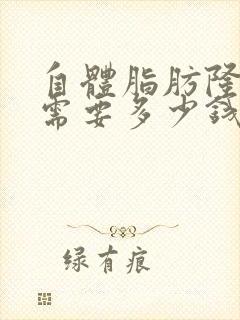 自體脂肪隆
需要多少錢
绿有痕